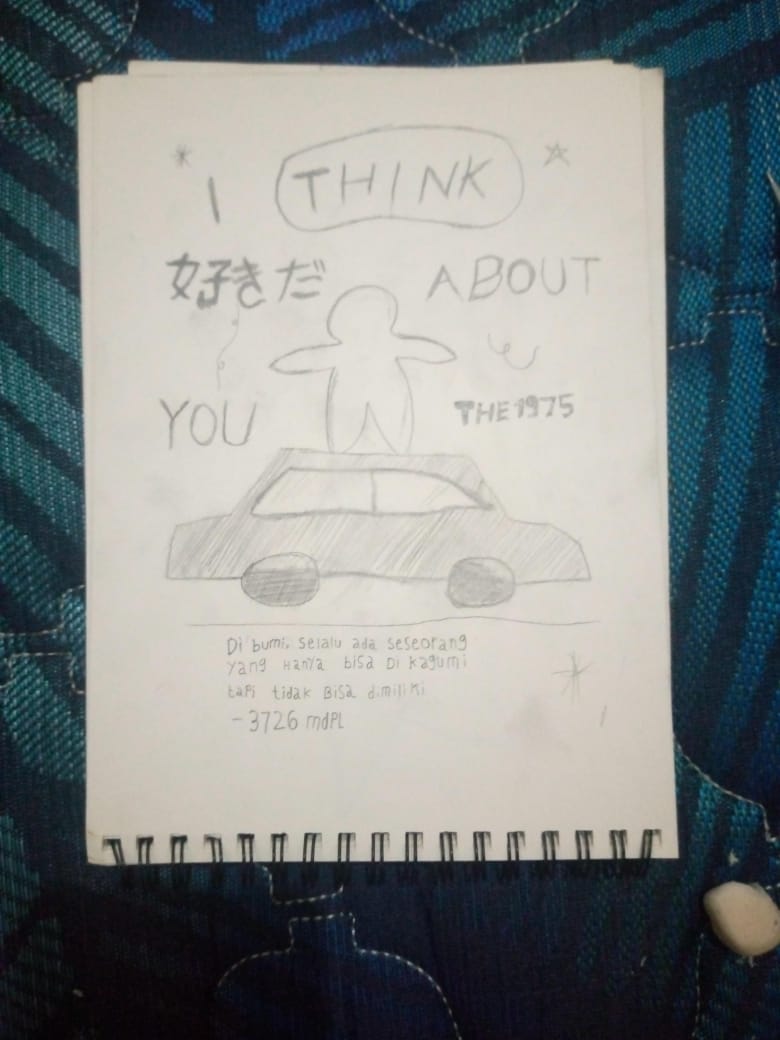 I THINK
好きだ ABOUT
YOU THE 1975
Di bumi, selalu ada seseorang
yang HanYa bisa Di kagumi
tapi tidak Bisa dimiliki
-3726 mdPL